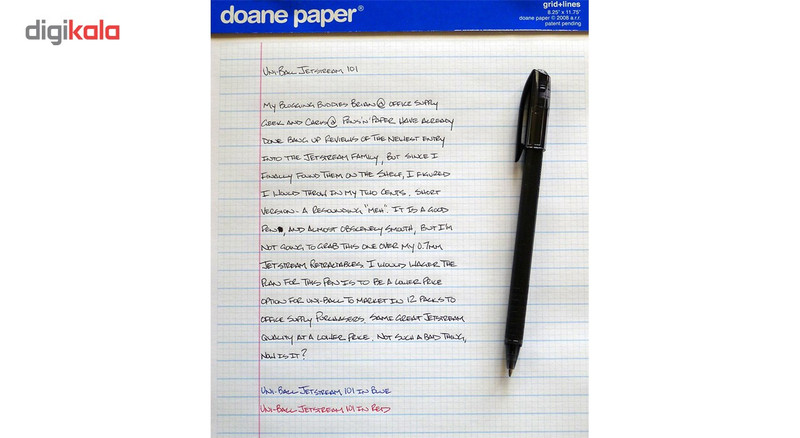 digikala
doane paper®
grid+lines
8.25" x 11.75"
doane paper © 2008 a.r.r.
patent pending
UNI-BALL JETSTREAM 101
MY BLOGGING BUDDIES BRIAN @ OFFICE SUPPLY
GEEK AND CARIS @ PENS 'N' PAPER HAVE ALREADY
DONE BANG UP REVIEWS OF THE NEWEST ENTRY
INTO THE JETSTREAM FAMILY, BUT SINCE I
FINALLY FOUND THEM ON THE SHELF, I FIGURED
I WOULD THROW IN MY TWO CENTS. SHORT
VERSION - A RESOUNDING "MEH". IT IS A GOOD
PEN, AND ALMOST OBSCENELY SMOOTH, BUT I'M
NOT GOING TO GRAB THIS ONE OVER MY 0.7MM
JETSTREAM RETRACTABLES. I WOULD WAGER THE
PLAN FOR THIS PEN IS TO BE A LOWER PRICE
OPTION FOR UNI-BALL TO MARKET IN 12 PACKS TO
OFFICE SUPPLY PURCHASERS. SAME GREAT JETSTREAM
QUALITY AT A LOWER PRICE. NOT SUCH A BAD THING,
NOW IS IT?
UNI-BALL JETSTREAM 101 IN BLUE
UNI-BALL JETSTREAM 101 IN RED